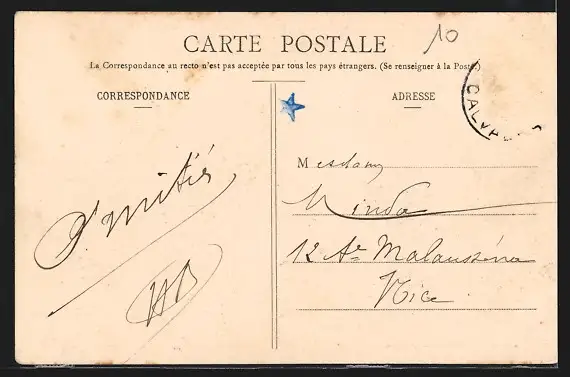 10
CARTE POSTALE
La Correspondance au recto n'est pas acceptée par tous les pays étrangers. (Se renseigner à la Poste)
CORRESPONDANCE
ADRESSE
CALVADOS
Amitiés
HB
Mesdames
Minda
12 Av Malausséna
Nice